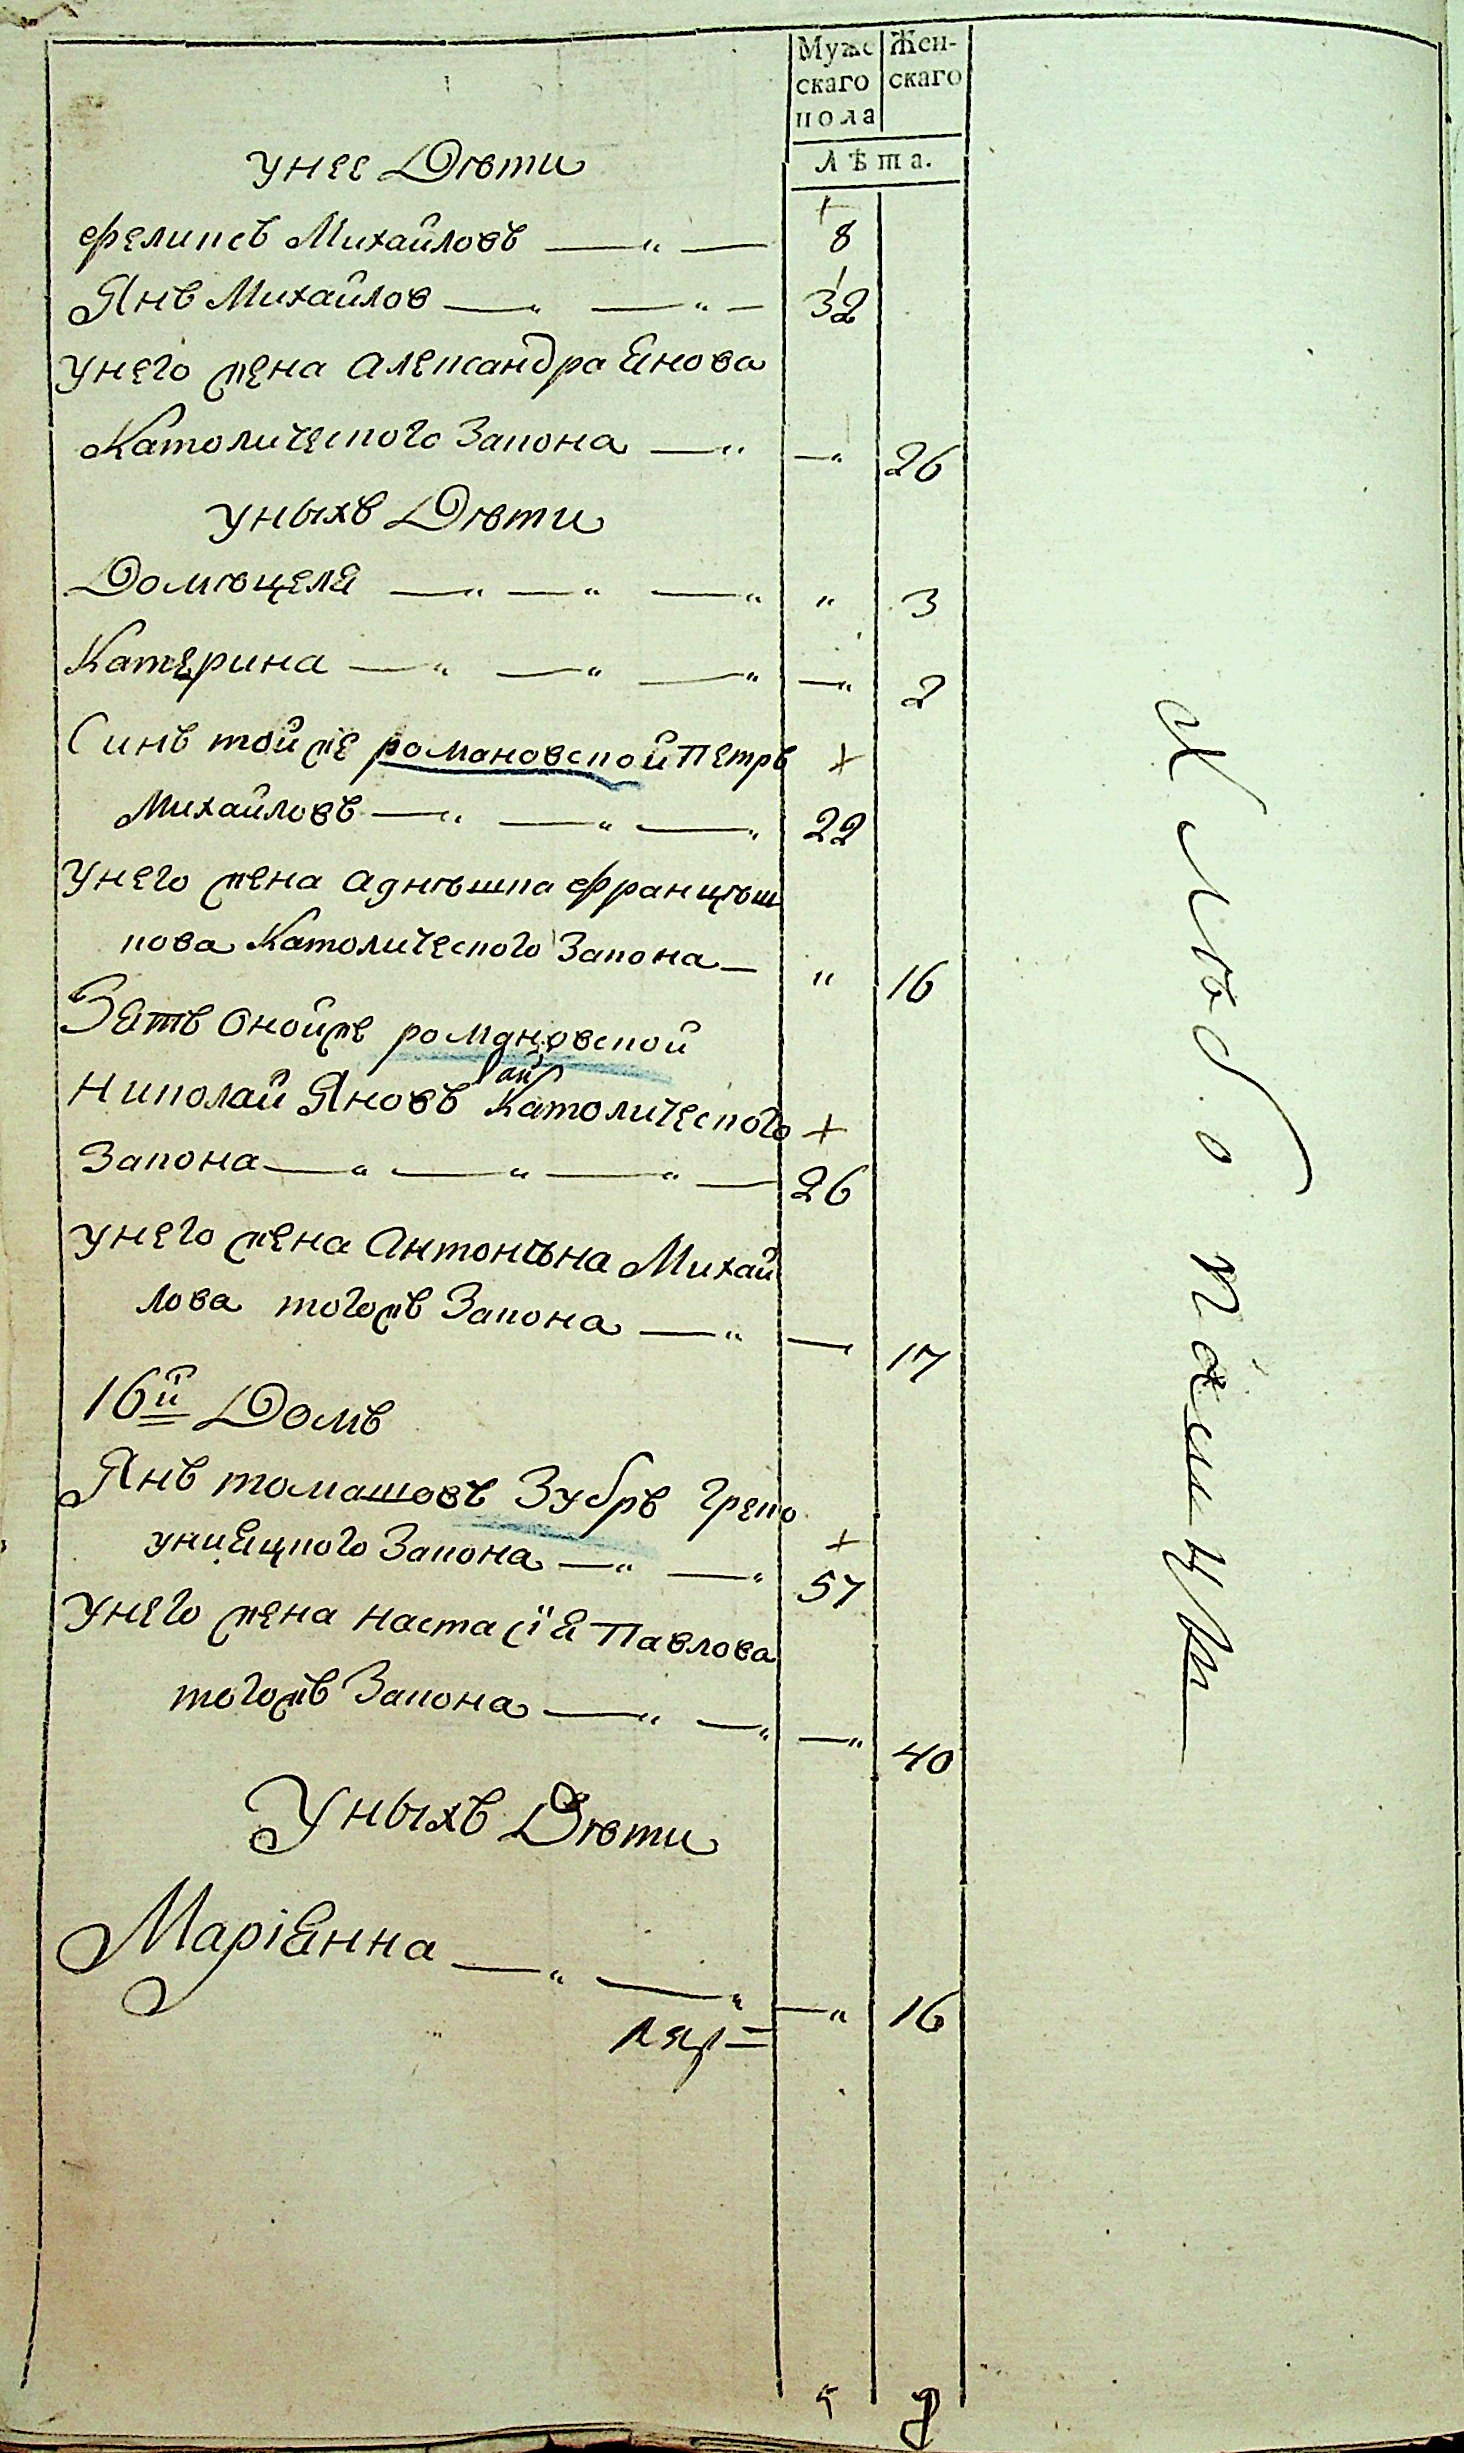 Муже Жен-
скаго скаго
пола
Лѣта.
унее Дѣти
Фелипсъ Михайловъ — „ — 8
Янъ Михайлов — „ — „ — 32
унего жена александра Янова
Католического Закона — „ — „ 26
уныхъ Дѣти
Домѣцеля — „ — „ — „ „ 3
Катерина — „ — „ — „ — „ 2
Синъ тойже романовской Петръ +
Михайловъ — „ — „ — „ 22
унего жена агнѣшка Францѣш
кова Католического Закона — „ 16
Зять онойжъ романовской
Николай Яновъ Католического +
Закона — „ — „ — „ — 26
унего жена Антонѣна Михай
лова тогожъ Закона — „ — 17
16й Домъ
Янъ томашовъ Зубръ греко
унияцкого Закона — „ — „ + 57
унего жена настасія Павлова
тогожъ Закона — „ — „ — „ 40
Уныхъ Дѣти
Маріянна — „ — „ — „ 16